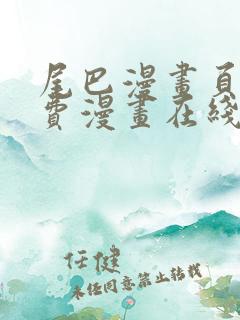 尾巴漫畫頁
費漫畫在綫
任健
未经同意禁止转载